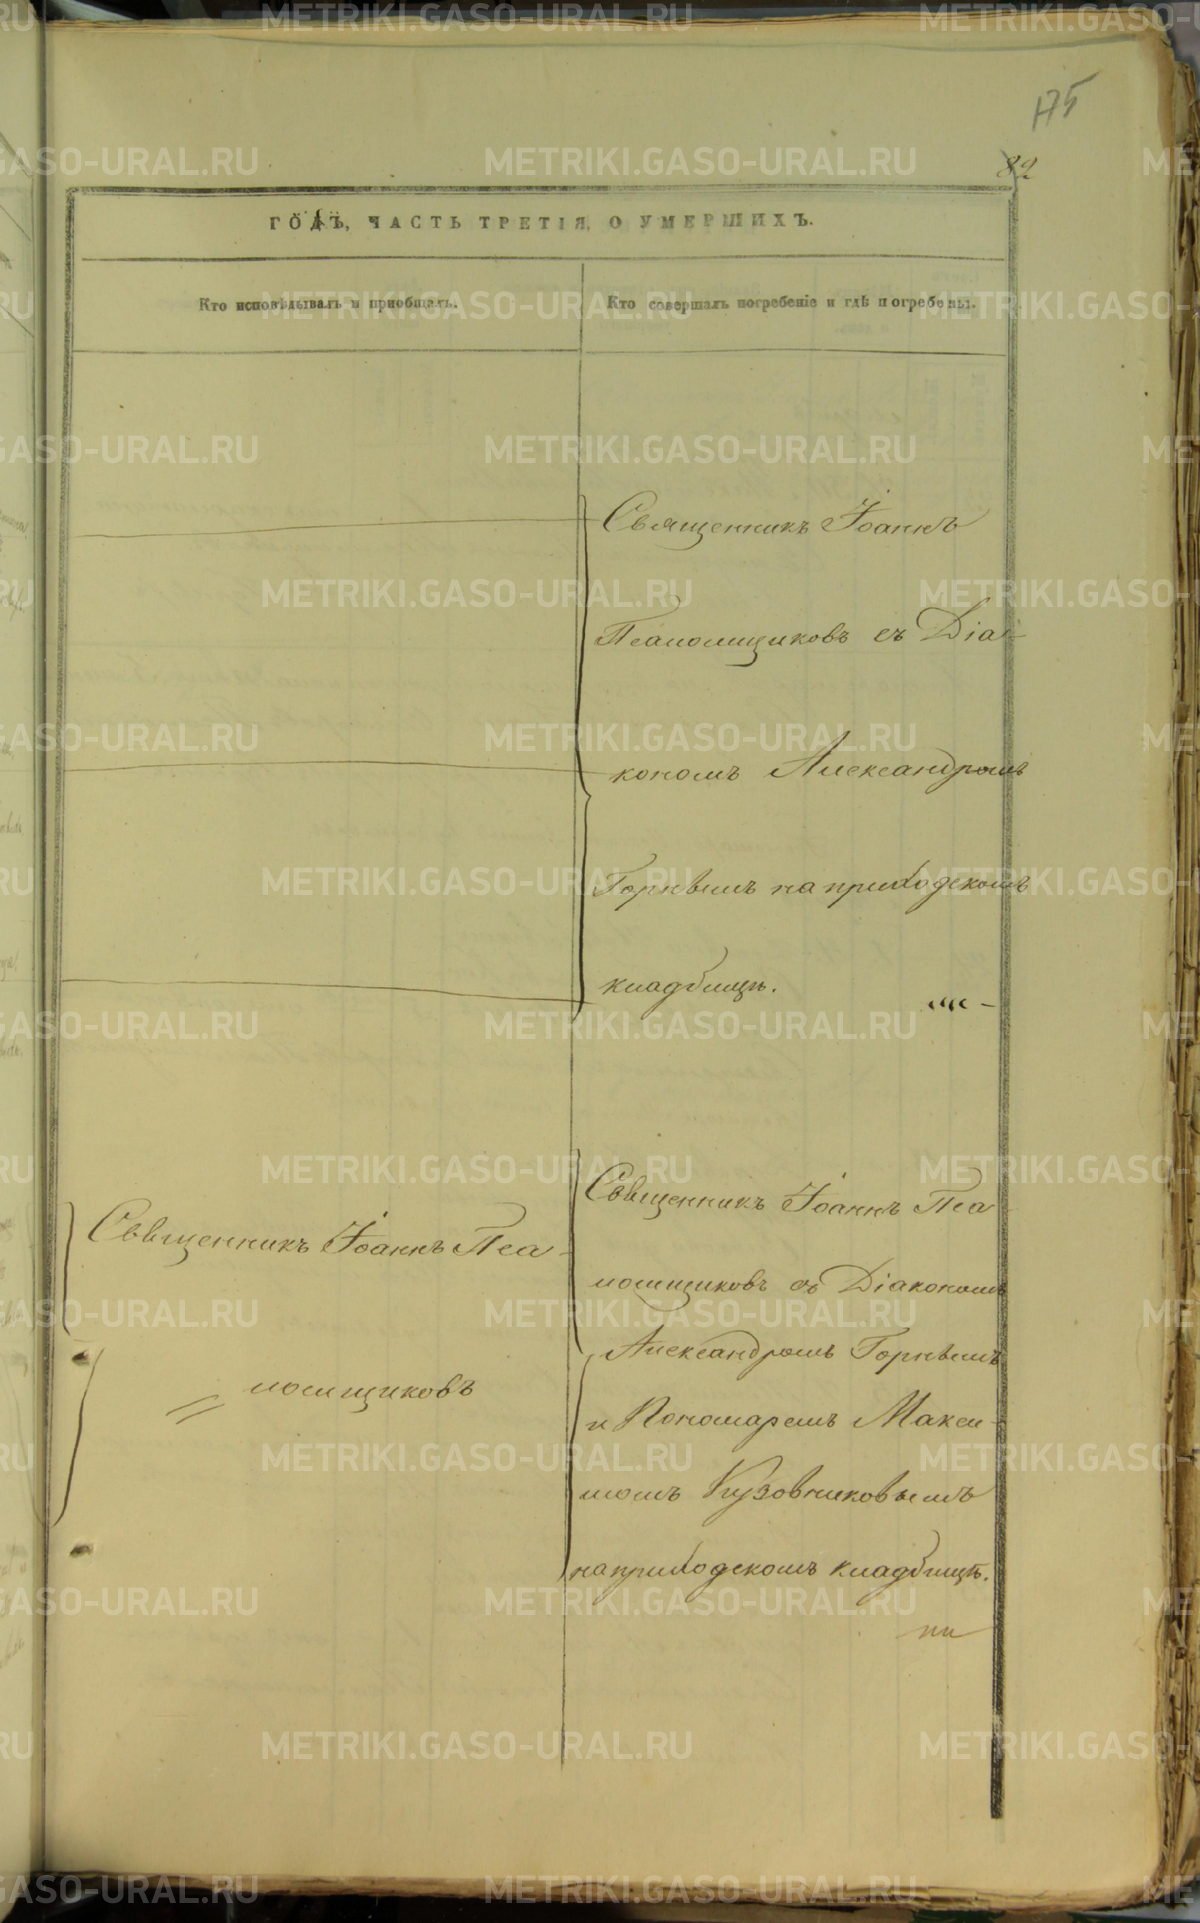 175
82
ГОДЪ, ЧАСТЬ ТРЕТІЯ, О УМЕРШИХЪ.
Кто исповѣдывалъ и приобщалъ.
Кто совершалъ погребеніе и гдѣ погребены.
Священникъ Іоаннъ
Псаломщиковъ съ Діа-
кономъ Александромъ
Горнымъ на приходскомъ
кладбищѣ.
Священникъ Іоаннъ Пса-
ломщиковъ
Священникъ Іоаннъ Пса
ломщиковъ съ Діакономъ
Александромъ Горнымъ
и Пономаремъ Макси-
момъ Кузовниковымъ
на приходскомъ кладбищѣ.
METRIKI.GASO-URAL.RU